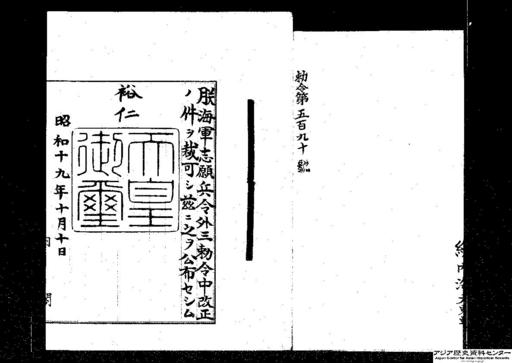 勅令第五百九十
朕海軍志願兵令外三勅令中改正
ノ件ヲ裁可シ茲ニ之ヲ公布セシム
裕仁
天皇御璽
昭和十九年十月十日
アジア歴史資料センター
Japan Center for Asian Historical Records